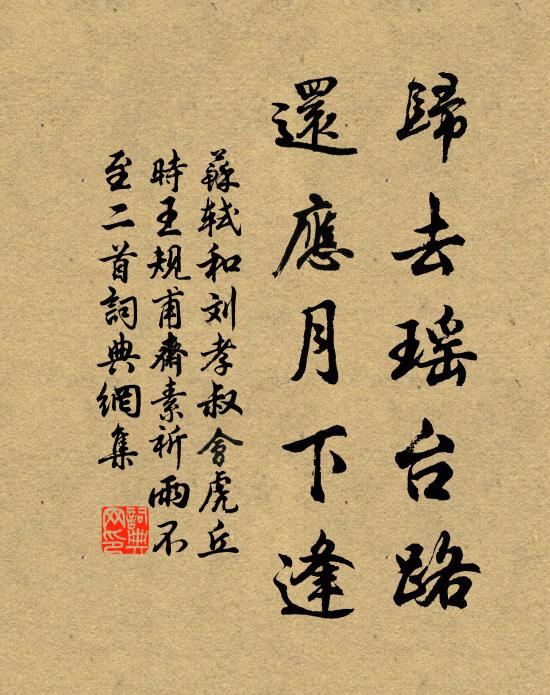 歸去瑶台路
還應月下逢
蘇軾和刘孝叔會虎丘
時王規甫齋素祈雨不
至二首詞典網集
詞典
网印